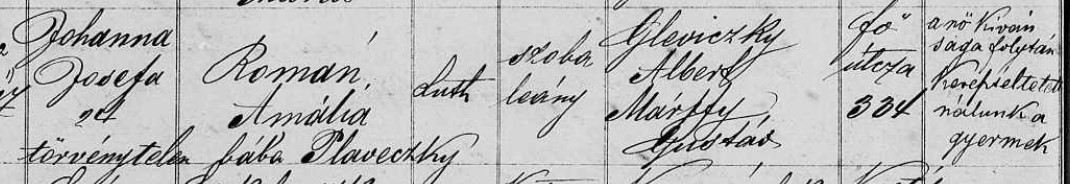 Johanna
Josefa
törvénytelen
Román
Amália
bába Plaveczky
Luth
szoba
leány
Gleviczky
Albert
Mártfy
Gusztáv
fő
útcza
334
a nő kíván
sága folytán
kereszteltetett
nálunk a
gyermek